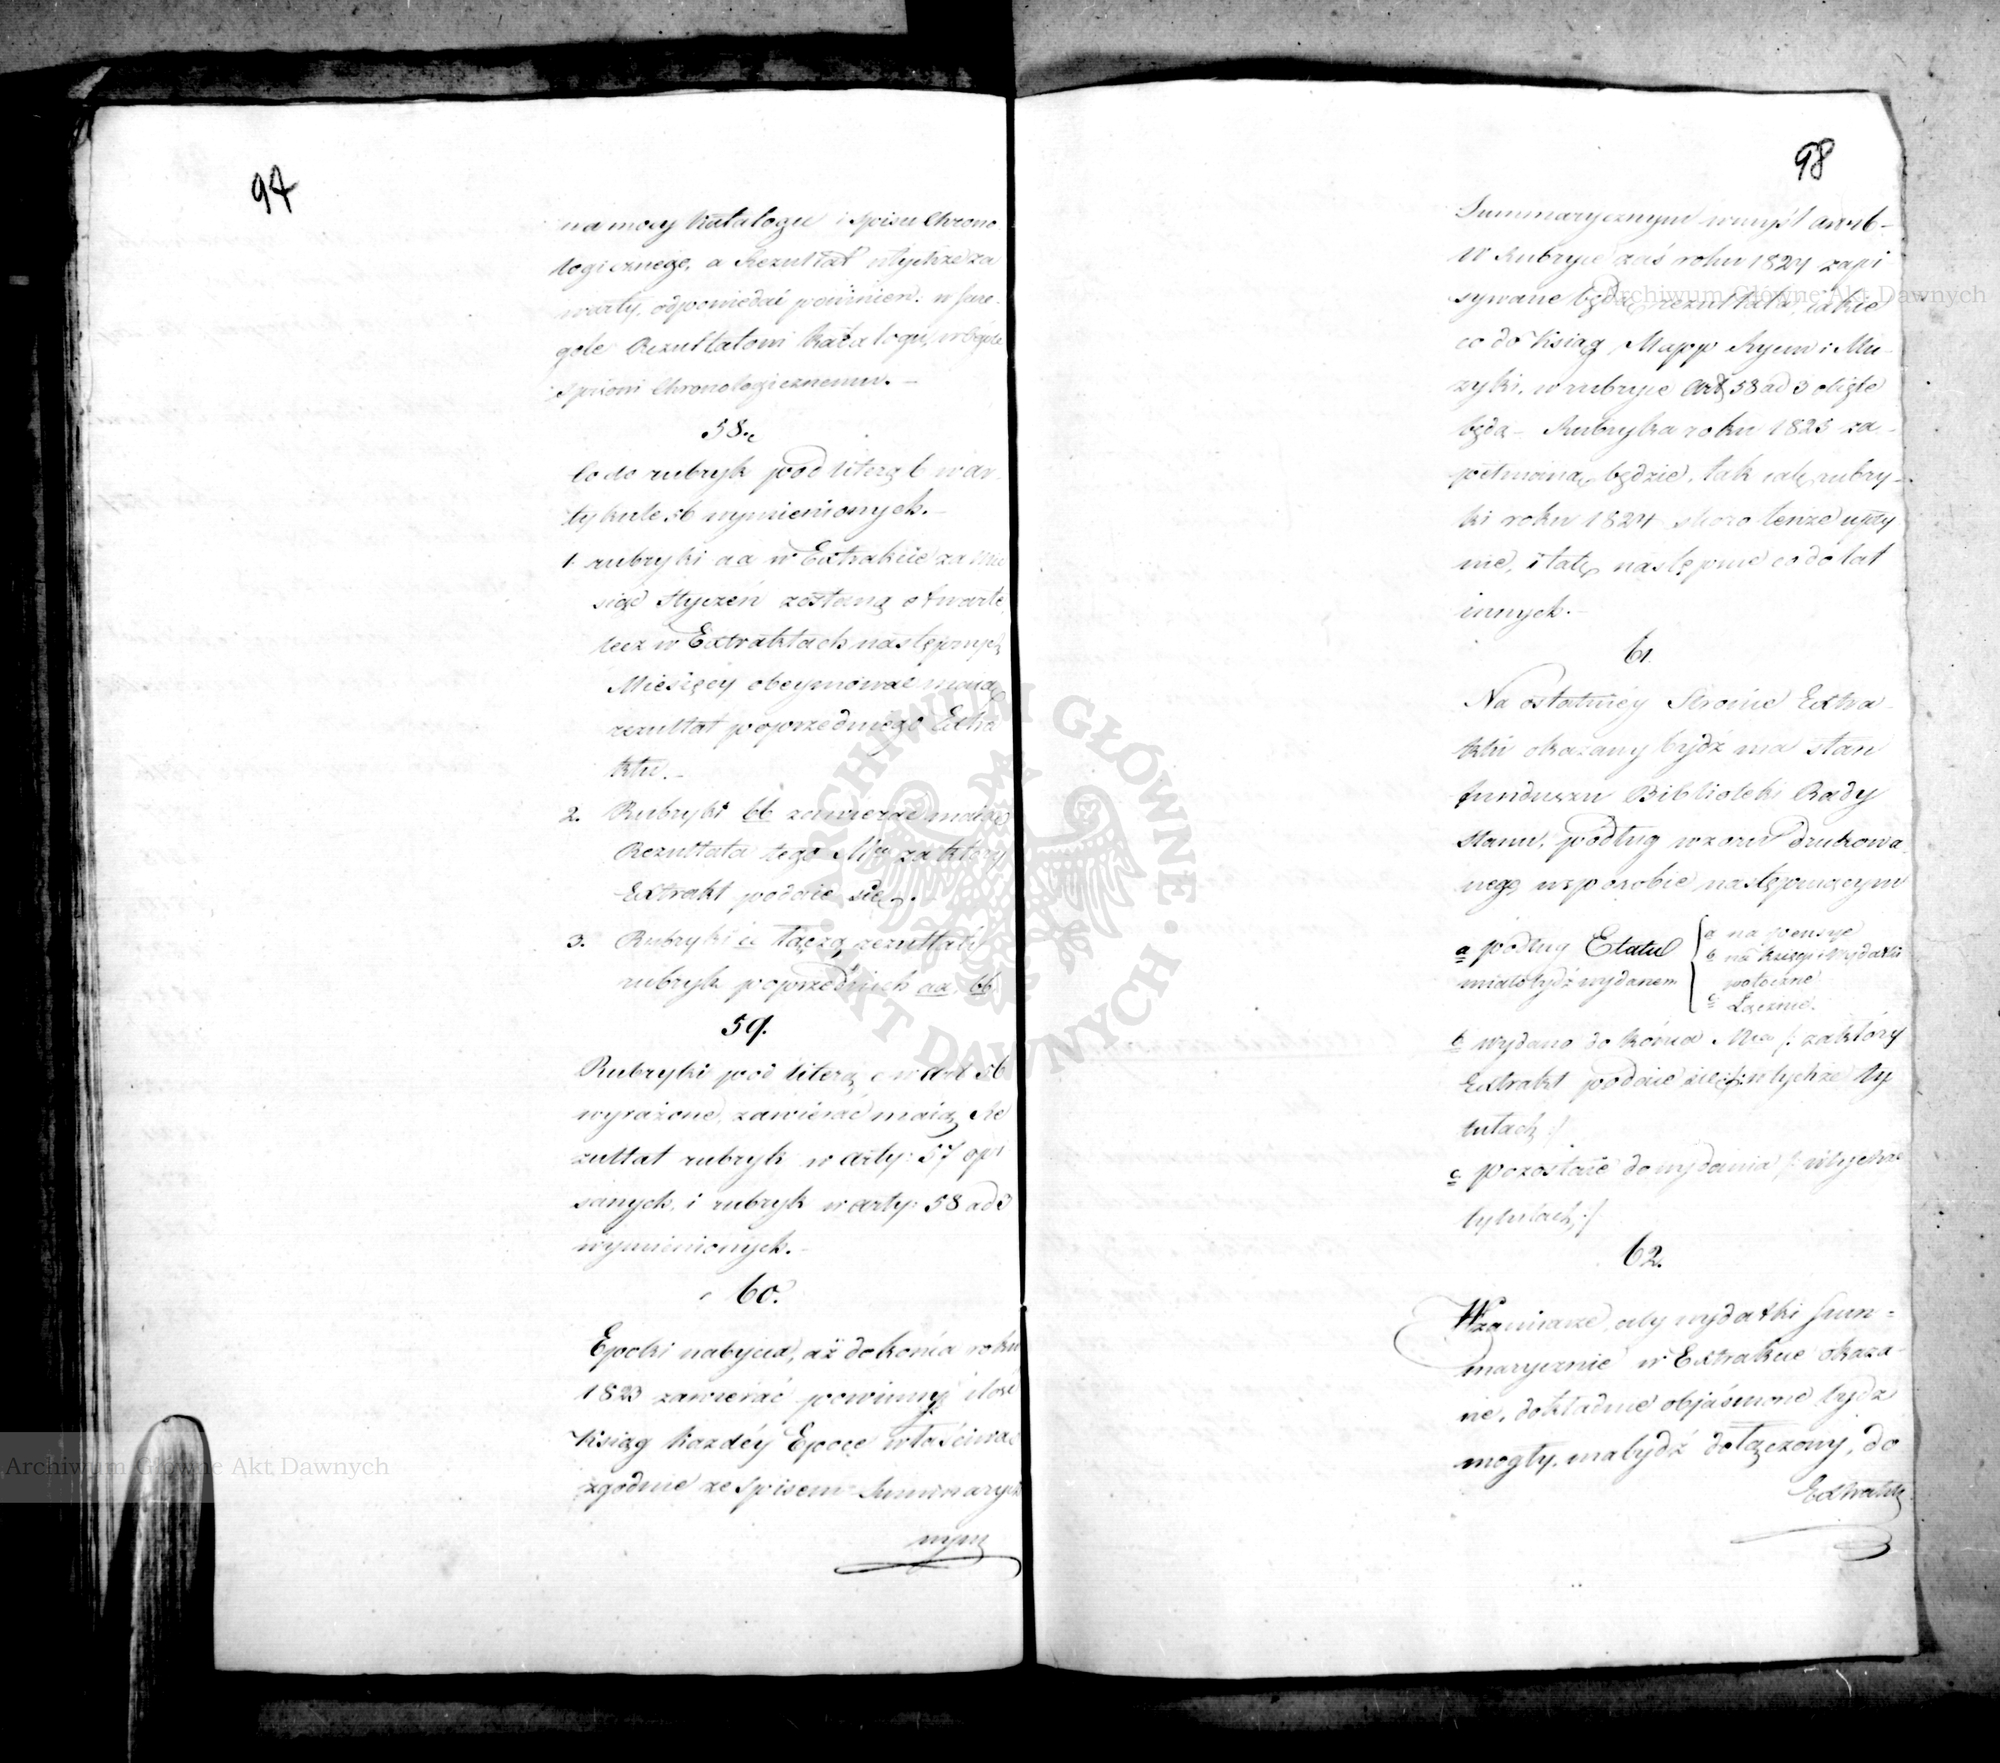 97
na mocy Katalogu i Spisu Chrono
logicznego, a Rezultat w tychże za
warty, odpowiedać powinien: w szcze-
gole Rezultatowi Katalogu, w ogóle
Spisowi Chronologicznemu. —
58.
Co do rubryk pod literą b w ar-
tykule 56 wymienionych. —
1. rubryki aa w Extrakcie za Mie
siąc Styczeń zostaną otwarte,
lecz w Extraktach następnych
Miesięcy obeymować maią
rezultat poprzedniego Extra
ktu. —
2. Rubryki bb zawierać maią
Rezultata tego Mca za który
Extrakt podaie się. —
3. Rubryki cc łączą rezultata
rubryk poprzednich aa, bb
59.
Rubryki pod literą c w art 56
wyrażone, zawierać maią Re
zultat rubryk w arty: 57 opi
sanych, i rubryk w arty: 58 ad 3
wymienionych. —
60.
Epoki nabycia, aż do końca roku
1823 zawierać powinny ilość
Ksiąg każdéy Epoce właściwą
zgodnie ze Spisem Summarycz
nym
98
Summarycznym w myśl art 16 —
W Rubryce zaś roku 1824 zapi
sywane będą rezultata, iakie
co do Ksiąg Mapp Rycin i Mu-
zyki, w rubryce art 58 ad 3 obięte
będą — Rubryka roku 1825 za-
pełnianą będzie, tak iak rubry-
ki roku 1824 skoro tenże upły
nie, i tak następnie co do lat
innych. —
61.
Na ostatniéy Stronie Extra-
ktu okazany bydź ma stan
funduszu Biblioteki Rady
Stanu, podług wzoru drukowa
nego w sposobie następuiącym
a podług Etatu
miało bydź wydanem
a na pensye
b na Księgi i wydatki
potoczne
c Łącznie.
b wydano do końca Mca /: za który
Extrakt podaie się :/ w tychże ty
tułach :/
c pozostaie do wydania /: w tychże
tytułach :/
62.
W zamiarze, aby wydatki Sum=
marycznie w Extrakcie okaza-
ne, dokładnie objaśnione bydź
mogły, ma bydź dołączony, do
Extraktu
Archiwum Główne Akt Dawnych
Archiwum Główne Akt Dawnych
ARCHIWUM GŁÓWNE · AKT DAWNYCH ·